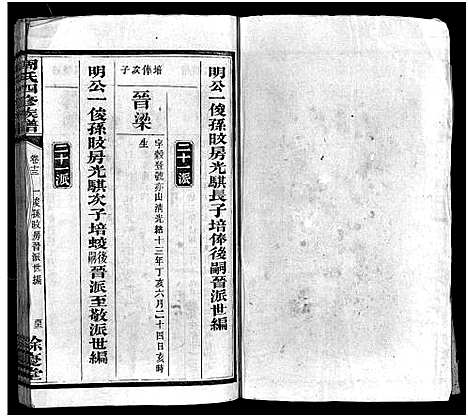 明公一俊孫昅房光騏長子培俸後嗣晉派世編
二十一派
培俸次子
晉梁
字毅登號亦山清光緒十三年丁亥六月二十四日亥時
生
明公一俊孫昅房光騏次子培蛟後嗣晉派至敬派世編
二十一派
周氏四修族譜
卷十三
一俊孫昅房晉派世編
餘慶堂